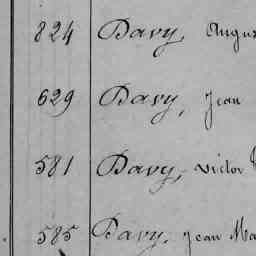 824 Davy, Augus
629 Davy, Jean
581 Davy, Victor
585 Davy, Jean Ma